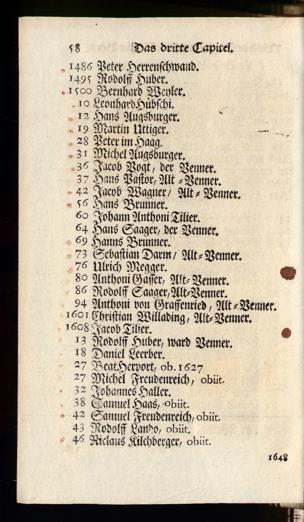 58 Das dritte Capitel.
1486 Peter Herrenschwand.
1495 Rodolff Huber.
1500 Bernhard Weyler.
10 Leonhard Hübschi.
12 Hans Augsburger.
19 Martin Uttiger.
28 Peter im Haag.
31 Michel Augsburger.
36 Jacob Vogt, der Venner.
37 Hans Pastor, Alt-Venner.
42 Jacob Wagner/ Alt-Venner.
56 Hans Brunner.
60 Johann Anthoni Tilier.
64 Hans Saager, der Venner.
69 Hanns Brunner.
73 Sebastian Darm/ Alt-Venner.
76 Ulrich Megger.
80 Anthoni Gasser, Alt-Venner.
86 Rodolff Saager, Alt-Venner.
94 Anthoni von Graffenried, Alt-Venner.
1601 Christian Willading, Alt-Venner.
1608 Jacob Tilier.
13 Rodolff Huber, ward Venner.
18 Daniel Leerber.
27 Beat Herport, ob. 1627
27 Michel Freudenreich, obiit.
32 Johannes Haller.
38 Samuel Haas, obiit.
42 Samuel Freudenreich, obiit.
43 Rodolff Lando, obiit.
46 Niclaus Kilchberger, obiit.
1648